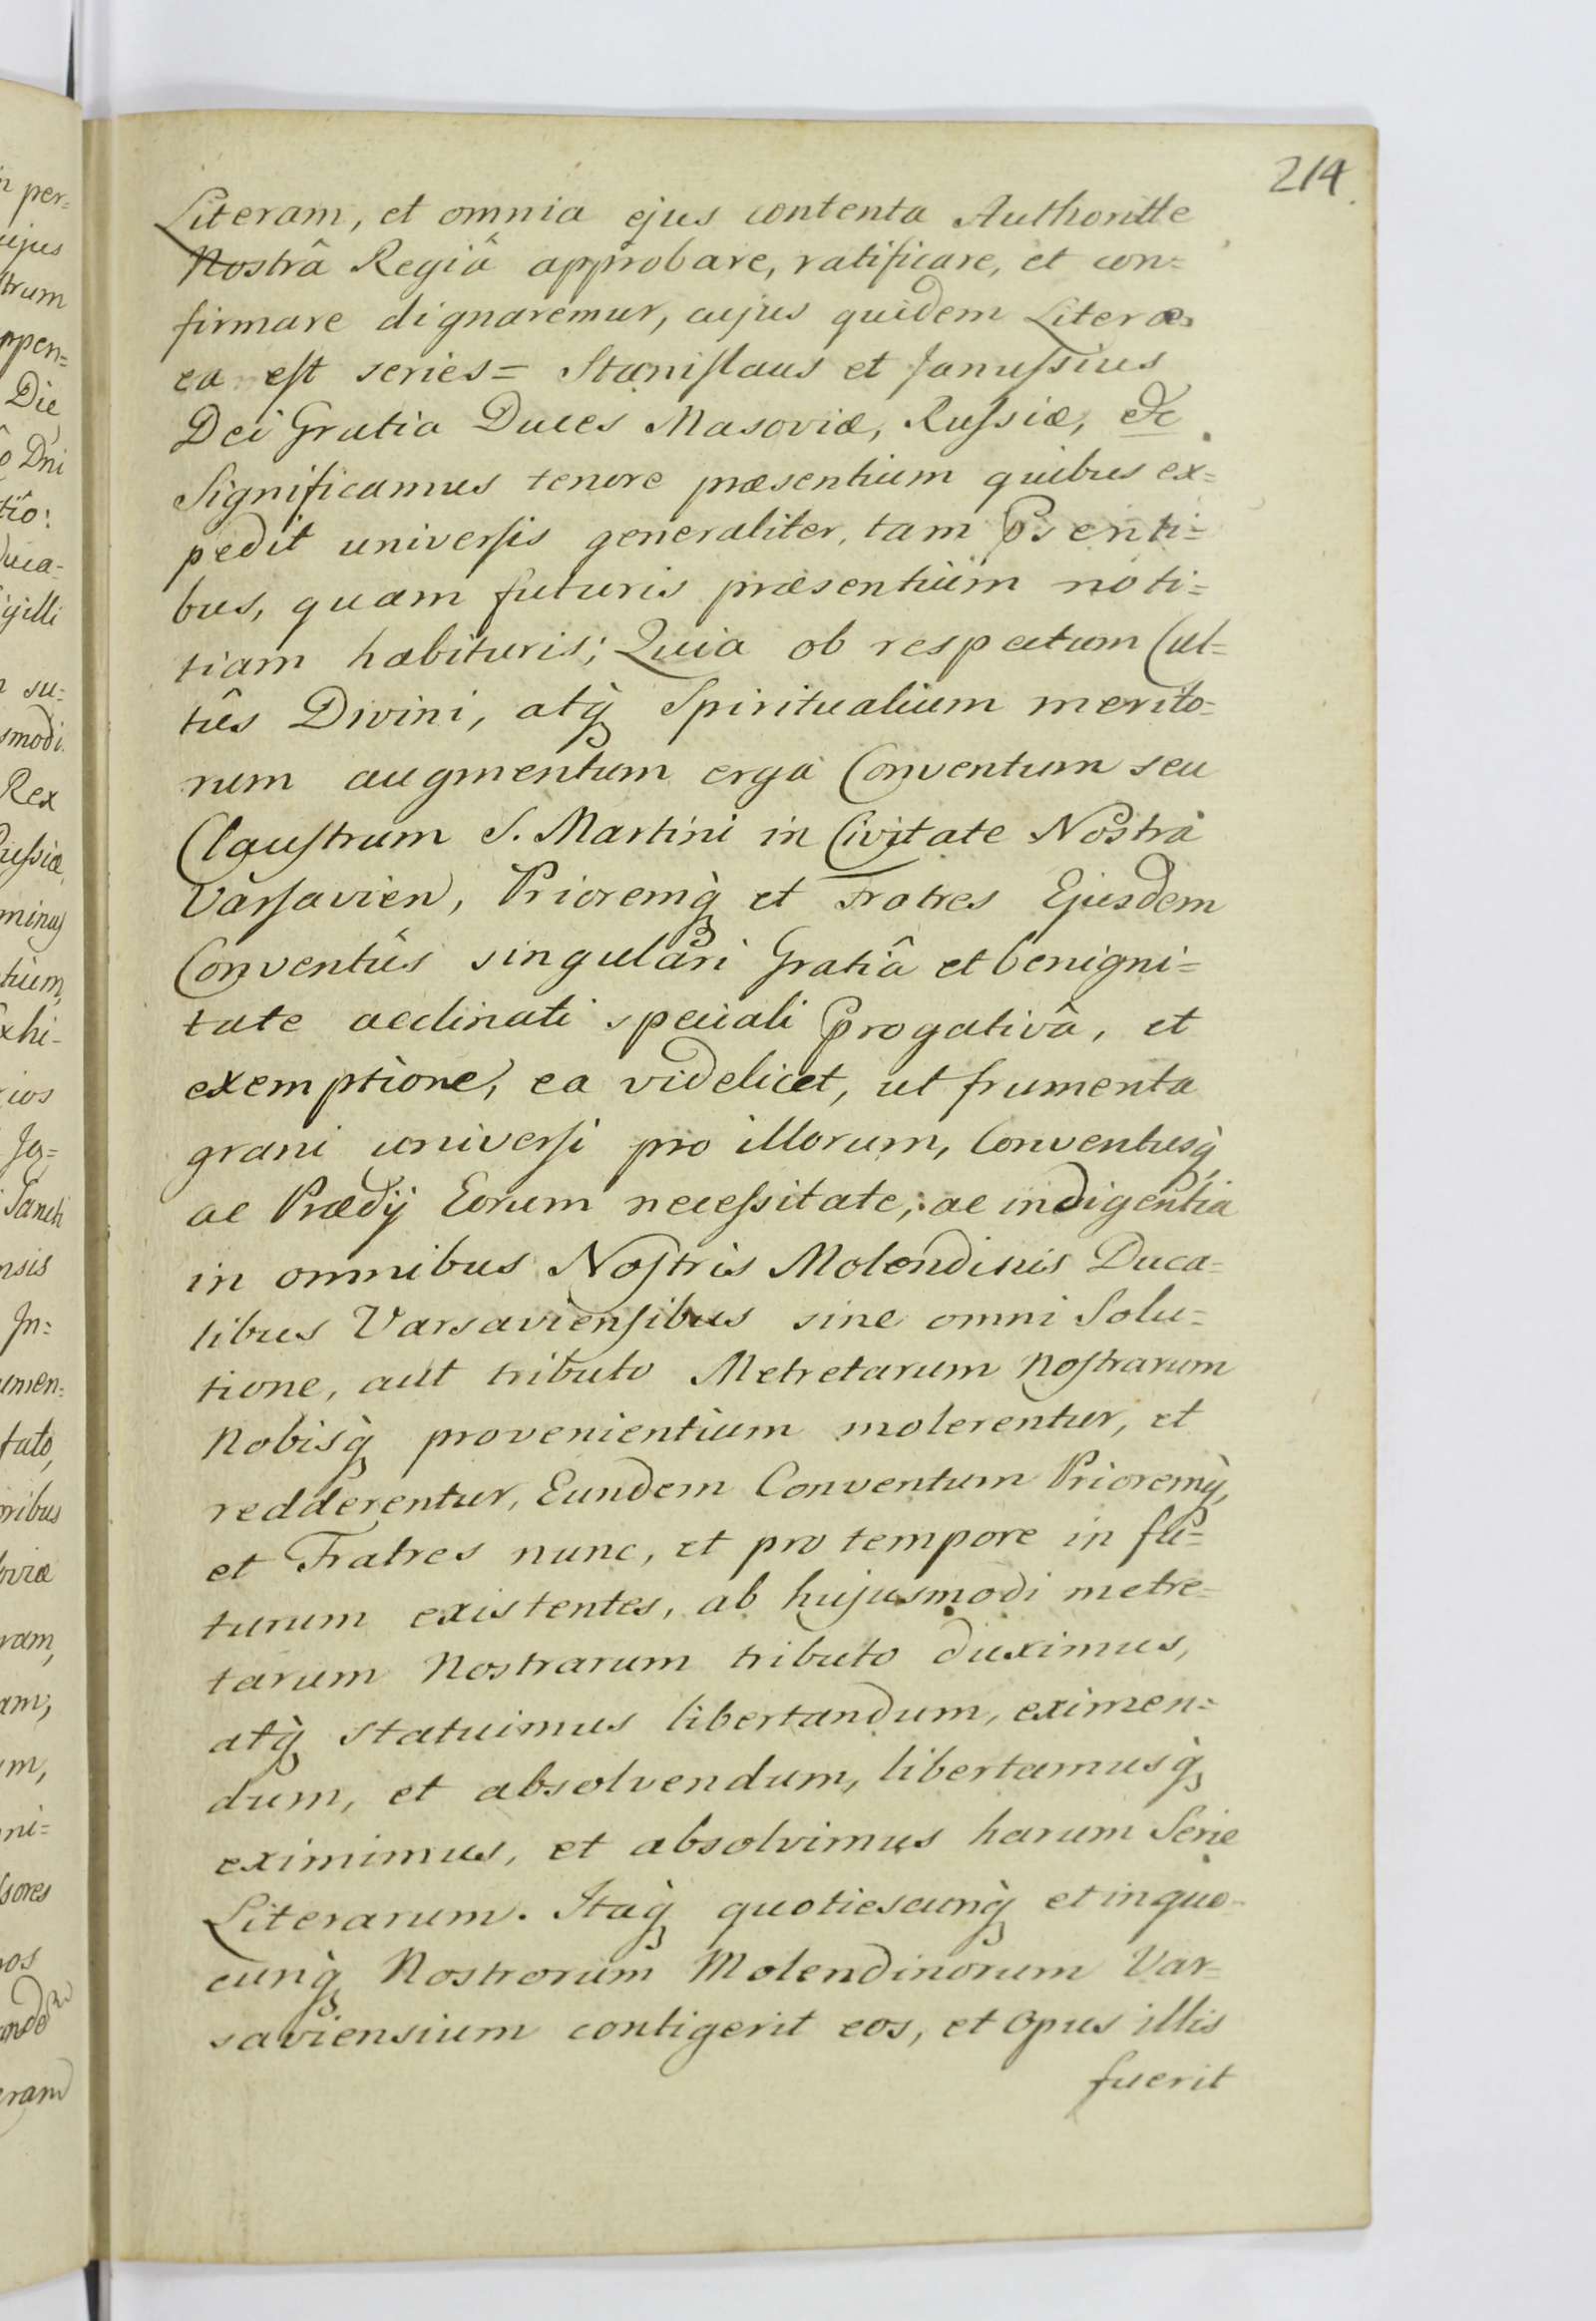 214.
Literam, et omnia ejus contenta Authoritte
Nostrâ Regiâ approbare, ratificare, et con=
firmare dignaremur, cujus quidem Literæ
ea est series = Stanislaus et Janussius
Dei Gratia Duces Masoviæ, Russiæ, &c
Significamus tenore præsentium quibus ex=
pedit universis generaliter, tam Psenti=
bus, quam futuris præsentium noti=
tiam habituris; Quia ob respectum Cul=
tûs Divini, atq̀ Spiritualium merito=
rum augmentum erga Conventum seu
Claustrum S. Martini in Civitate Nostra
Varsavien, Prioremq̀ et Fratres Ejusdem
Conventûs singulari Gratiâ et benigni=
tate acclinati speciali Progativâ, et
exemptione, ea videlicet, ut frumenta
grani universi pro illorum, Conventusq̀
ac Prædij Eorum necessitate, ac indigentia
in omnibus Nostris Molendinis Duca=
libus Varsaviensibus sine omni Solu=
tione, aut tributo Metretarum Nostrarum
Nobisq̀ provenientium molerentur, et
redderentur, Eundem Conventum Prioremq̀,
et Fratres nunc, et pro tempore in fu=
turum existentes, ab hujusmodi metre=
tarum Nostrarum tributo duximus,
atq̀ statuimus libertandum, eximen=
dum, et absolvendum, libertamusq̀
eximimus, et absolvimus harum Serie
Literarum. Itaq̀ quotiescunq̀ et in quo=
cunq̀ Nostrorum Molendinorum Var=
saviensium contigerit eos, et opus illis
fuerit